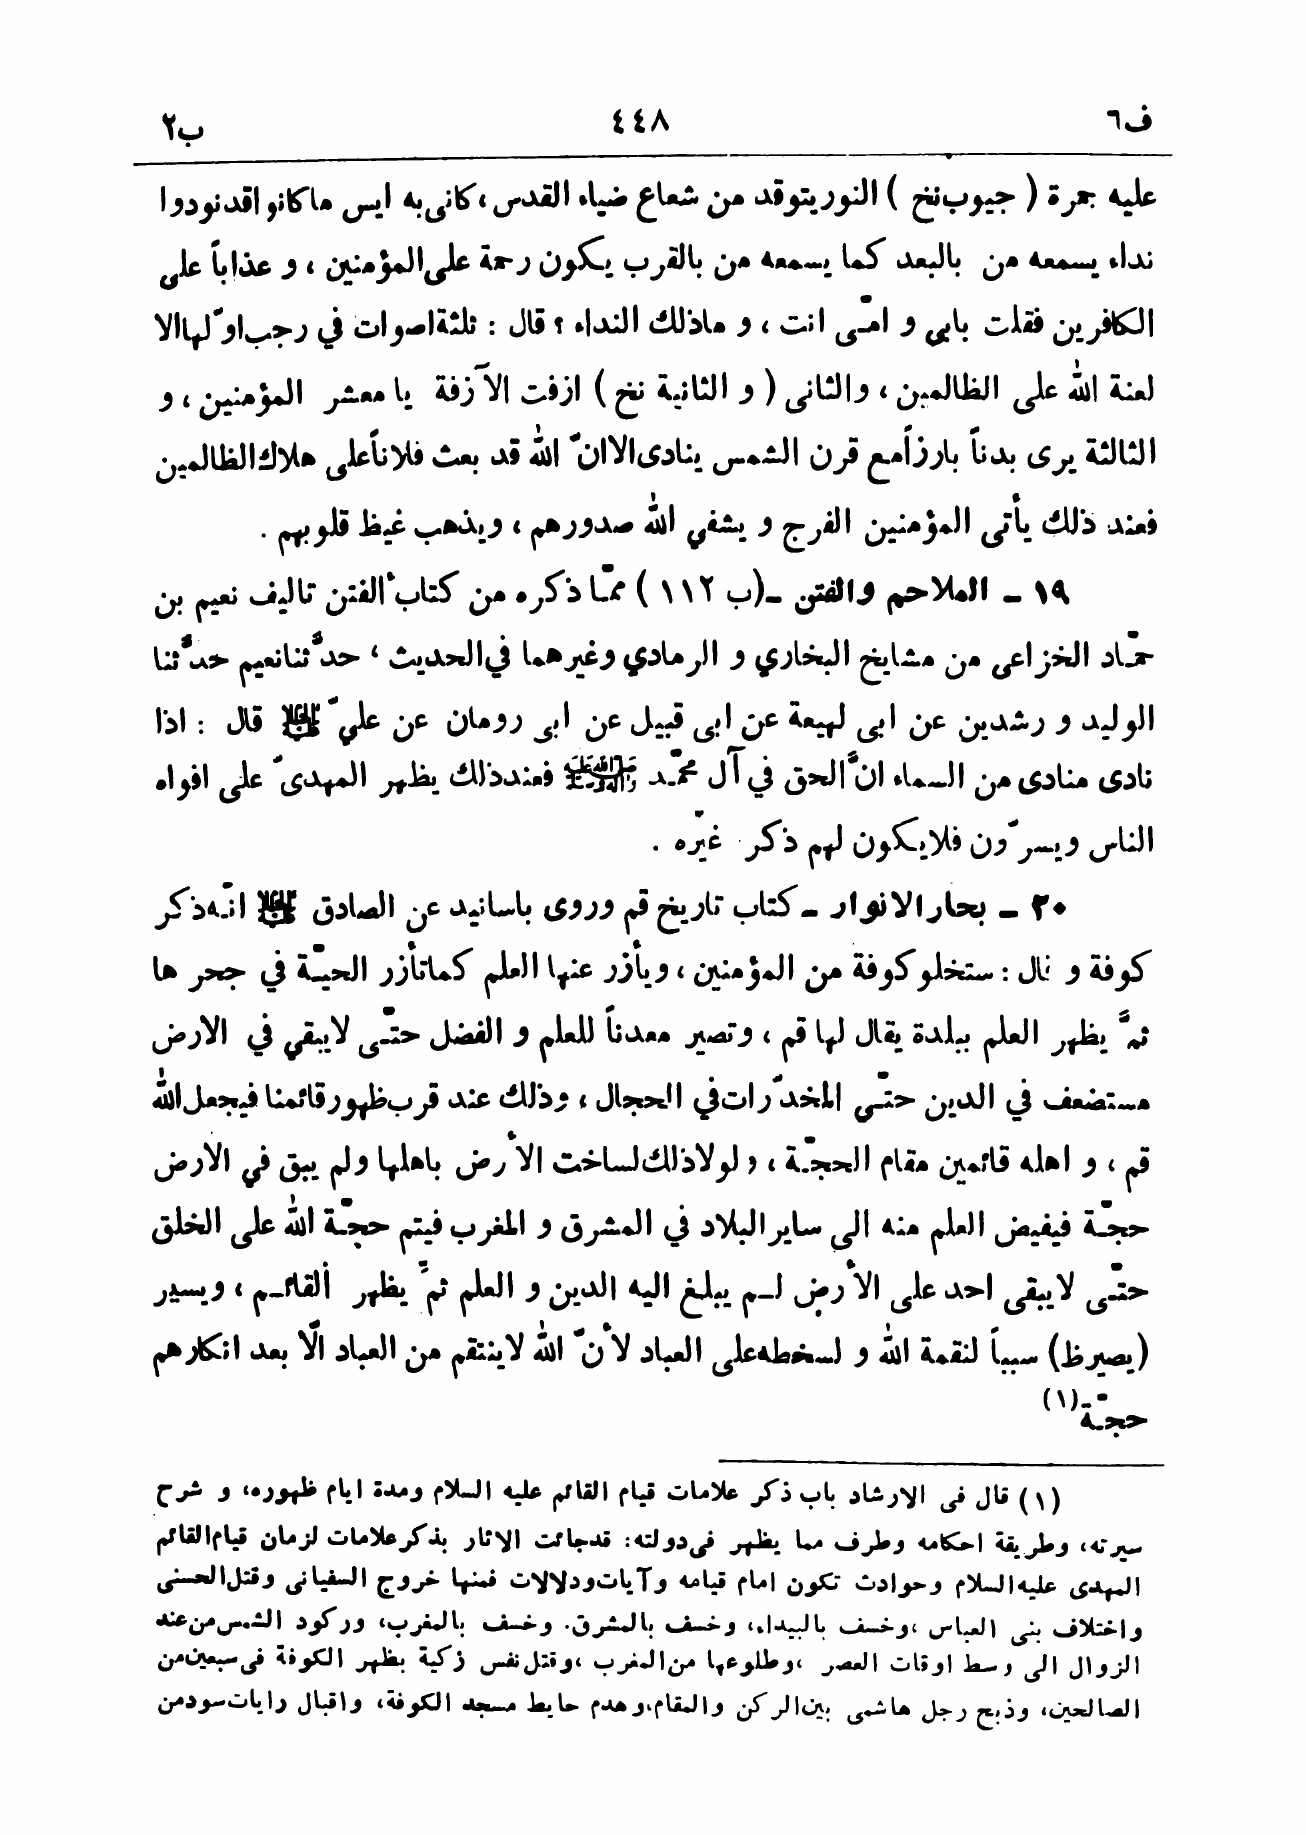 ف٦ ٤٤٨ ب٢
عليه جمرة ( جيوب نخ ) النور يتوقد من شعاع ضياء القدس ، كانى به ايس ما كانوا قد نودوا
نداء يسمعه من بالبعد كما يسمعه من بالقرب يكون رحمة على المؤمنين ، و عذاباً على
الكافرين فقلت بابي و امّى انت ، و ماذلك النداء ؟ قال : ثلثة اصوات في رجب اوّلها الا
لعنة الله على الظالمين ، والثانى ( و الثانية نخ ) ازفت الآزفة يا معشر المؤمنين ، و
الثالثة يرى بدناً بارزاً مع قرن الشمس ينادى الا انّ الله قد بعث فلاناً على هلاك الظالمين
فعند ذلك يأتى المؤمنين الفرج و يشفي الله صدورهم ، ويذهب غيظ قلوبهم .
١٩ ـ الملاحم والفتن ـ (ب ١١٢ ) ممّا ذكره من كتاب الفتن تاليف نعيم بن
حمّاد الخزاعى من مشايخ البخاري و الرمادي وغيرهما في الحديث ، حدّثنا نعيم حدّثنا
الوليد و رشدين عن ابى لهيعة عن ابى قبيل عن ابى رومان عن عليّ عليه السلام قال : اذا
نادى منادى من السماء انّ الحق في آل محمّد صلى الله عليه وآله وسلم فعند ذلك يظهر المهدىّ على افواه
الناس ويسرّون فلا يكون لهم ذكر غيره .
٢٠ ـ بحار الانوار ـ كتاب تاريخ قم وروى باسانيد عن الصادق عليه السلام انّه ذكر
كوفة و قال : ستخلو كوفة من المؤمنين ، ويأزر عنها العلم كما تأزر الحيّة في جحر ها
ثمّ يظهر العلم ببلدة يقال لها قم ، وتصير معدناً للعلم و الفضل حتّى لا يبقي في الارض
مستضعف في الدين حتّي المخدّرات في الحجال ، وذلك عند قرب ظهور قائمنا فيجعل الله
قم ، و اهله قائمين مقام الحجّة ، و لولا ذلك لساخت الأرض باهلها ولم يبق في الارض
حجّة فيفيض العلم منه الى ساير البلاد في المشرق و المغرب فيتم حجّة الله على الخلق
حتّى لا يبقى احد على الأرض لـم يبلغ اليه الدين و العلم ثمّ يظهر ألقائـم ، ويسير
(يصير ظ) سبباً لنقمة الله و لسخطه على العباد لأنّ الله لا ينتقم من العباد الّا بعد انكارهم
حجّة (١)
(١) قال فى الارشاد باب ذكر علامات قيام القائم عليه السلام ومدة ايام ظهوره، و شرح
سيرته، وطريقة احكامه وطرف مما يظهر فى دولته: قد جائت الاثار بذكر علامات لزمان قيام القائم
المهدى عليه السلام وحوادث تكون امام قيامه وآيات ودلالات فمنها خروج السفيانى وقتل الحسنى
واختلاف بنى العباس ،وخسف بالبيداء، وخسف بالمشرق. وخسف بالمغرب، وركود الشمس من عند
الزوال الى وسط اوقات العصر ،وطلوعها من المغرب ،وقتل نفس زكية بظهر الكوفة فى سبعين من
الصالحين، وذبح رجل هاشمى بين الركن والمقام،وهدم حايط مسجد الكوفة، واقبال رايات سود من